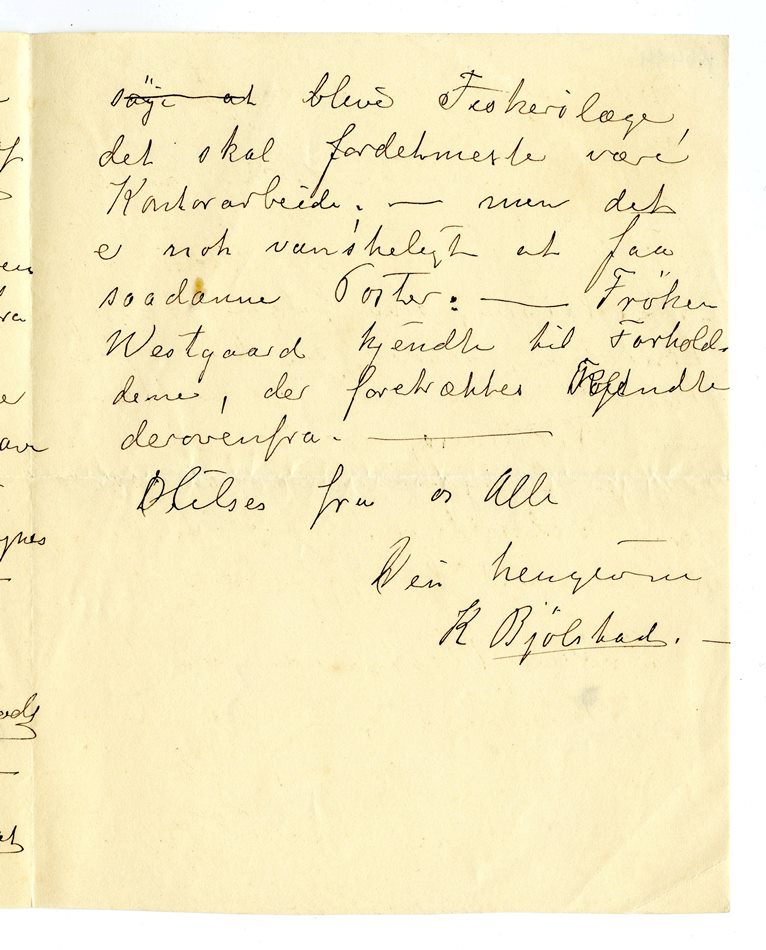 søge at bleve Fiskerilæge,
det skal fordetmeste være
Kontorarbeide. — men det
er nok vanskeligt at faa
saadanne Poster. — Fröken
Westgaard kjendte til Forhold-
dene, der foretrækkes
derovenfra. —
Hilses fra os Alle
Din hengivne
K Bjölstad. —